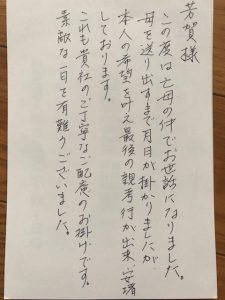 芳賀様
この度は亡母の件でお世話になりました。
母を送り出すまで月日が掛かりましたが、
本人の希望を叶え最後の親孝行が出来、安堵
しております。
これも貴社のご丁寧なご配慮のお掛けです。
素敵な一日を有難うございました。